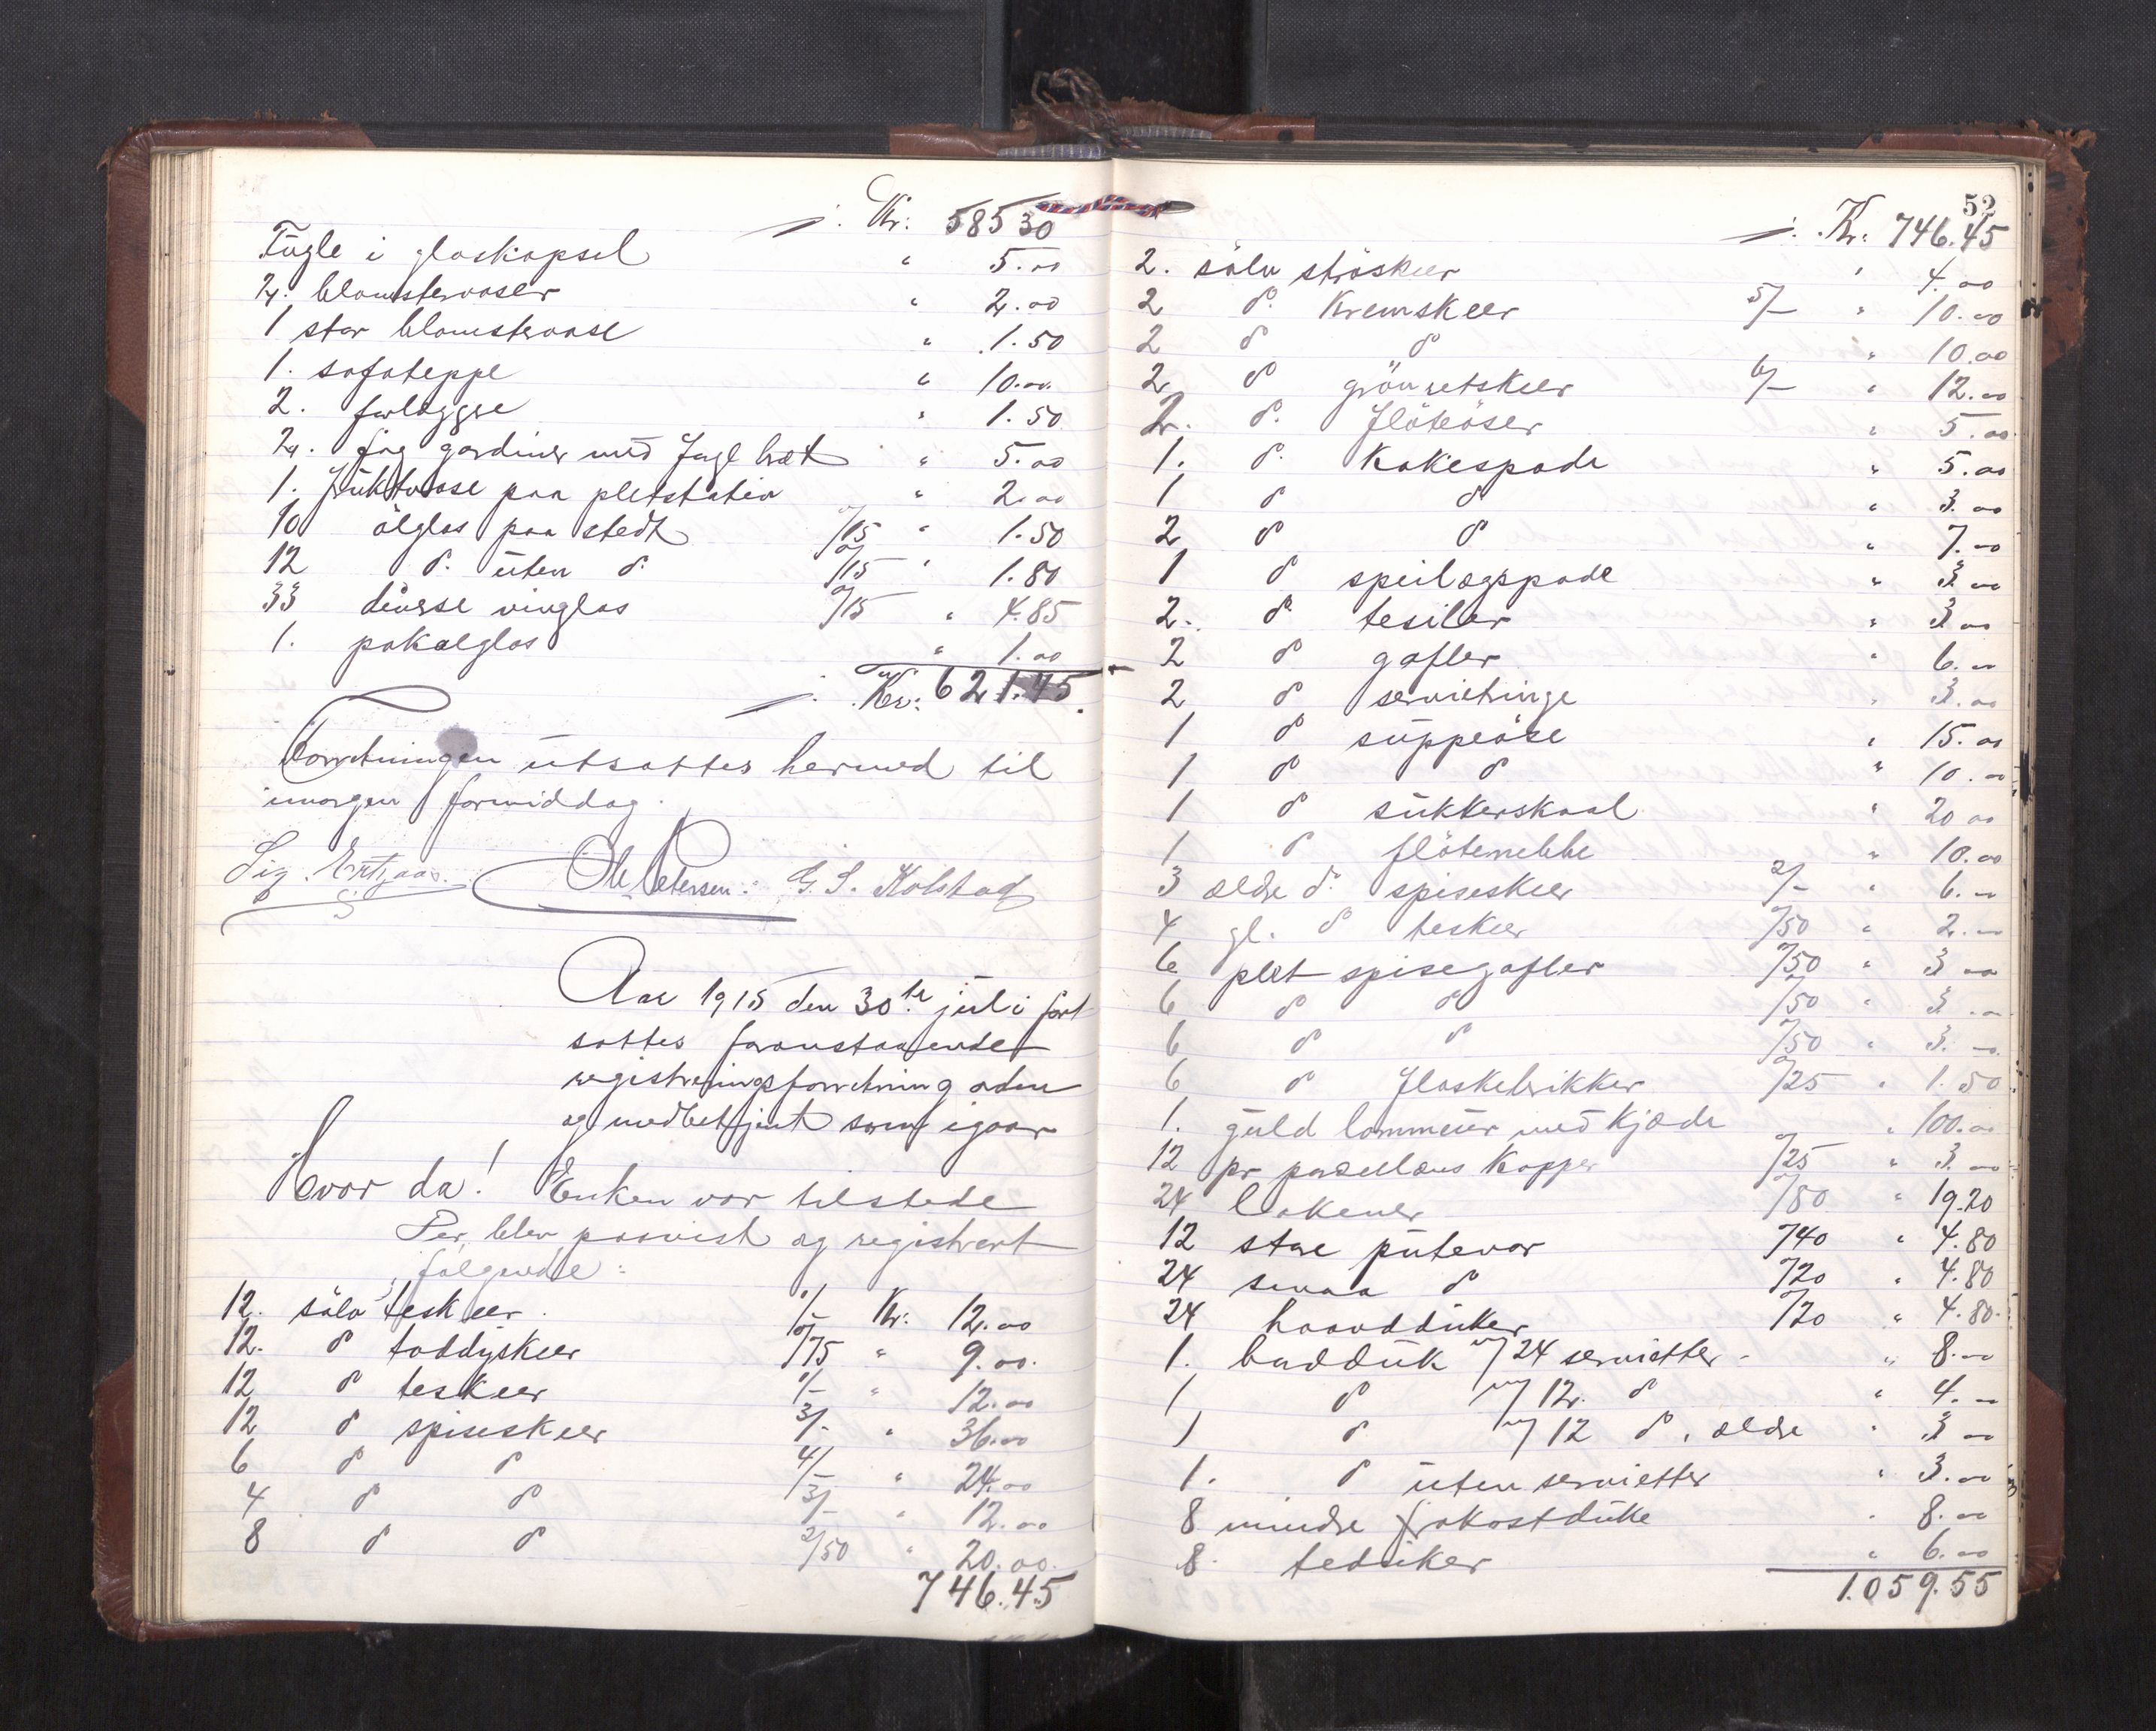 ·/. Kr: 585 30
Fugle i glaskapsel " 5.00
2. blomstervaser " 2.00
1 stor blomstervase " 1.50
1. sofateppe " 10.00
2. forlæggre " 1.50
2. fag gardiner med " 5.00
1. fruktvase paa pletstativ " 2.00
10 ölglas paa stedt /15 " 1.50
12 do. uten do. /15 " 1.80
33 diverse vinglas /15 " 4.85
1. pokalglas " 1.00
·/. Kr: 621.45.
Forretningen utsattes hermed til
imorgen formiddag.
Sig. Petersen. G. S. Kolstad
Aar 1915 den 30te juli fort
sattes foranstaaende
registreringsforretning
og medbetjent som igaar
Hvor da! Enken var tilstede
Der blev paavist og registrert
følgende:
12. sölv teskeer 1/- Kr: 12.00
12. do toddyskeer /75 " 9.00.
12 do teskeer 1/- " 12.00
12 do spiseskeer 3/- " 36.00
6 do do 4/- " 24.00
4 do do 3/- " 12.00
8 do do 2/50 " 20.00.
746.45
52
·/. Kr: 746.45
2. sölv ströskeer " 4.00
2 do. Kremskeer 5/- " 10.00
2 do do " 10.00
2 do grönsetskeer 6/- " 12.00
2. do. flöteöser " 5.00
1. do. Kakespade " 5.00
1 do do " 3.00
2 do do " 7.00
1 do speilægspade " 3.00
2. do tesiler " 3.00
2 do gafler " 6.00
2 do servietringe " 3.00
1 do suppeöse " 15.00
1 do do " 10.00
1 do sukkerskaal " 20 00
1 do flötemebbe " 10.00
3 ældre do. spiseskeer 2/- " 6.00
4 gl. do teskeer /50 " 2.00
6 plet spisegafler /50 " 3 00
6 do do /50 " 3.00
6 do do /50 " 3.00
6 do flaskebrikker /25 " 1.50
1. guld lommeur med kjæde " 100.00
12 pr porsellæns Kopper /25 " 3.00
24 lakener /80 " 19.20
12 store putevar /40 " 4.80
24 smaa do /20 " 4.80
24 haandduker /20 " 4.80
1. bordduk m/24 servietter - " 8.00
1 do m/12. do " 4.00
1 do m/12 do, ældre " 3 00
1. do uten servietter " 3.00
8 mindre frokostduke " 8.00
8. teduker " 6.00
1.059.55